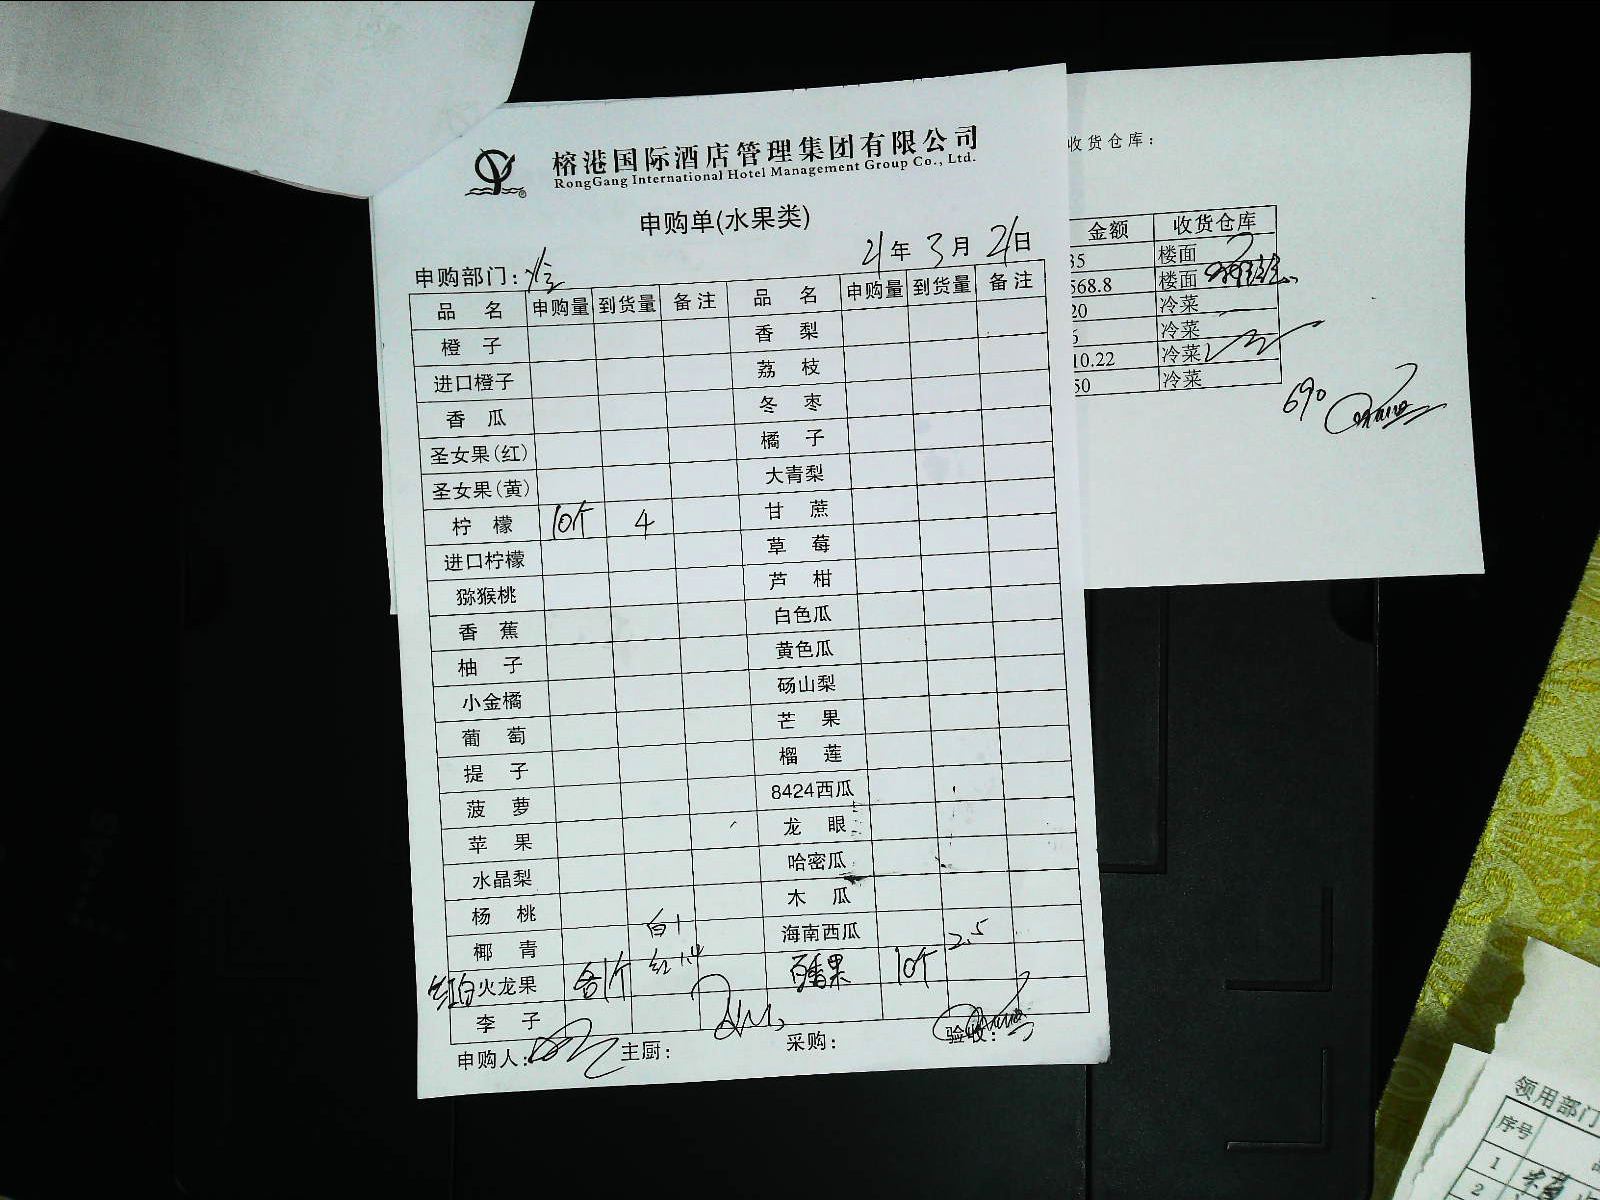 榕港国际酒店管理集团有限公司
RongGang International Hotel Management Group Co., Ltd.
申购单(水果类)
21年 3月 21日
申购部门:
品名 申购量 到货量 备注 品名 申购量 到货量 备注
橙子 香梨
进口橙子 荔枝
香瓜 冬枣
圣女果(红) 橘子
圣女果(黄) 大青梨
柠檬 10个 4 甘蔗
进口柠檬 草莓
猕猴桃 芦柑
香蕉 白色瓜
柚子 黄色瓜
小金橘 砀山梨
葡萄 芒果
提子 榴莲
菠萝 8424西瓜
苹果 龙眼
水晶梨 哈密瓜
杨桃 木瓜
椰青 白1 海南西瓜 2.5
红白火龙果 各1个 红1.4 百香果 10个
李子
申购人: 主厨: 采购: 验收:
收货仓库:
金额 收货仓库
35 楼面
568.8 楼面
20 冷菜
6 冷菜
10.22 冷菜
50 冷菜
690
领用部门
序号
1
2